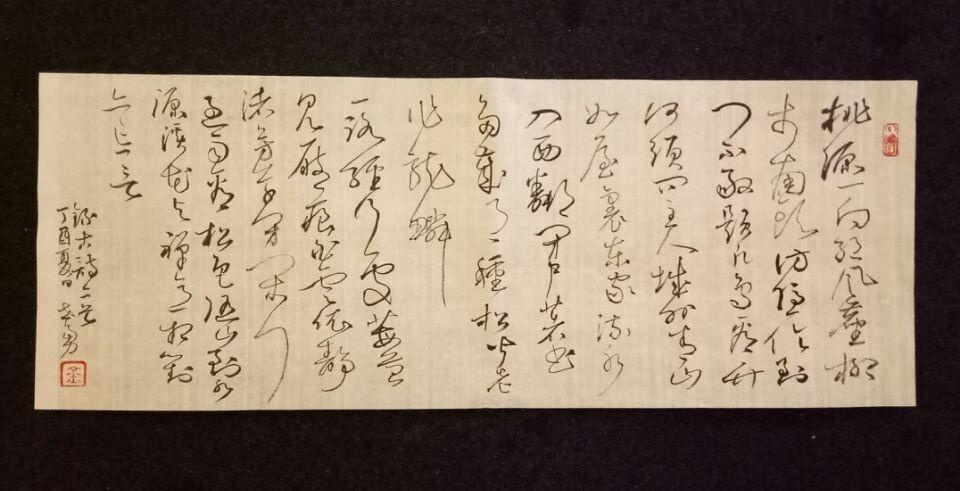 桃源一向絕風塵柳
市南頭訪隱淪到
門不敢題凡鳥看竹
何須問主人城外青山
如屋裏東家流水
入西鄰閉戶著書
多歲月種松皆老
作龍鱗
一路經行處莓苔
見履痕白雲依靜
渚芳草閉閑門
過雨看松色隨山到水
源溪花與禪意相對
亦忘言
錄古詩二首
丁酉夏日